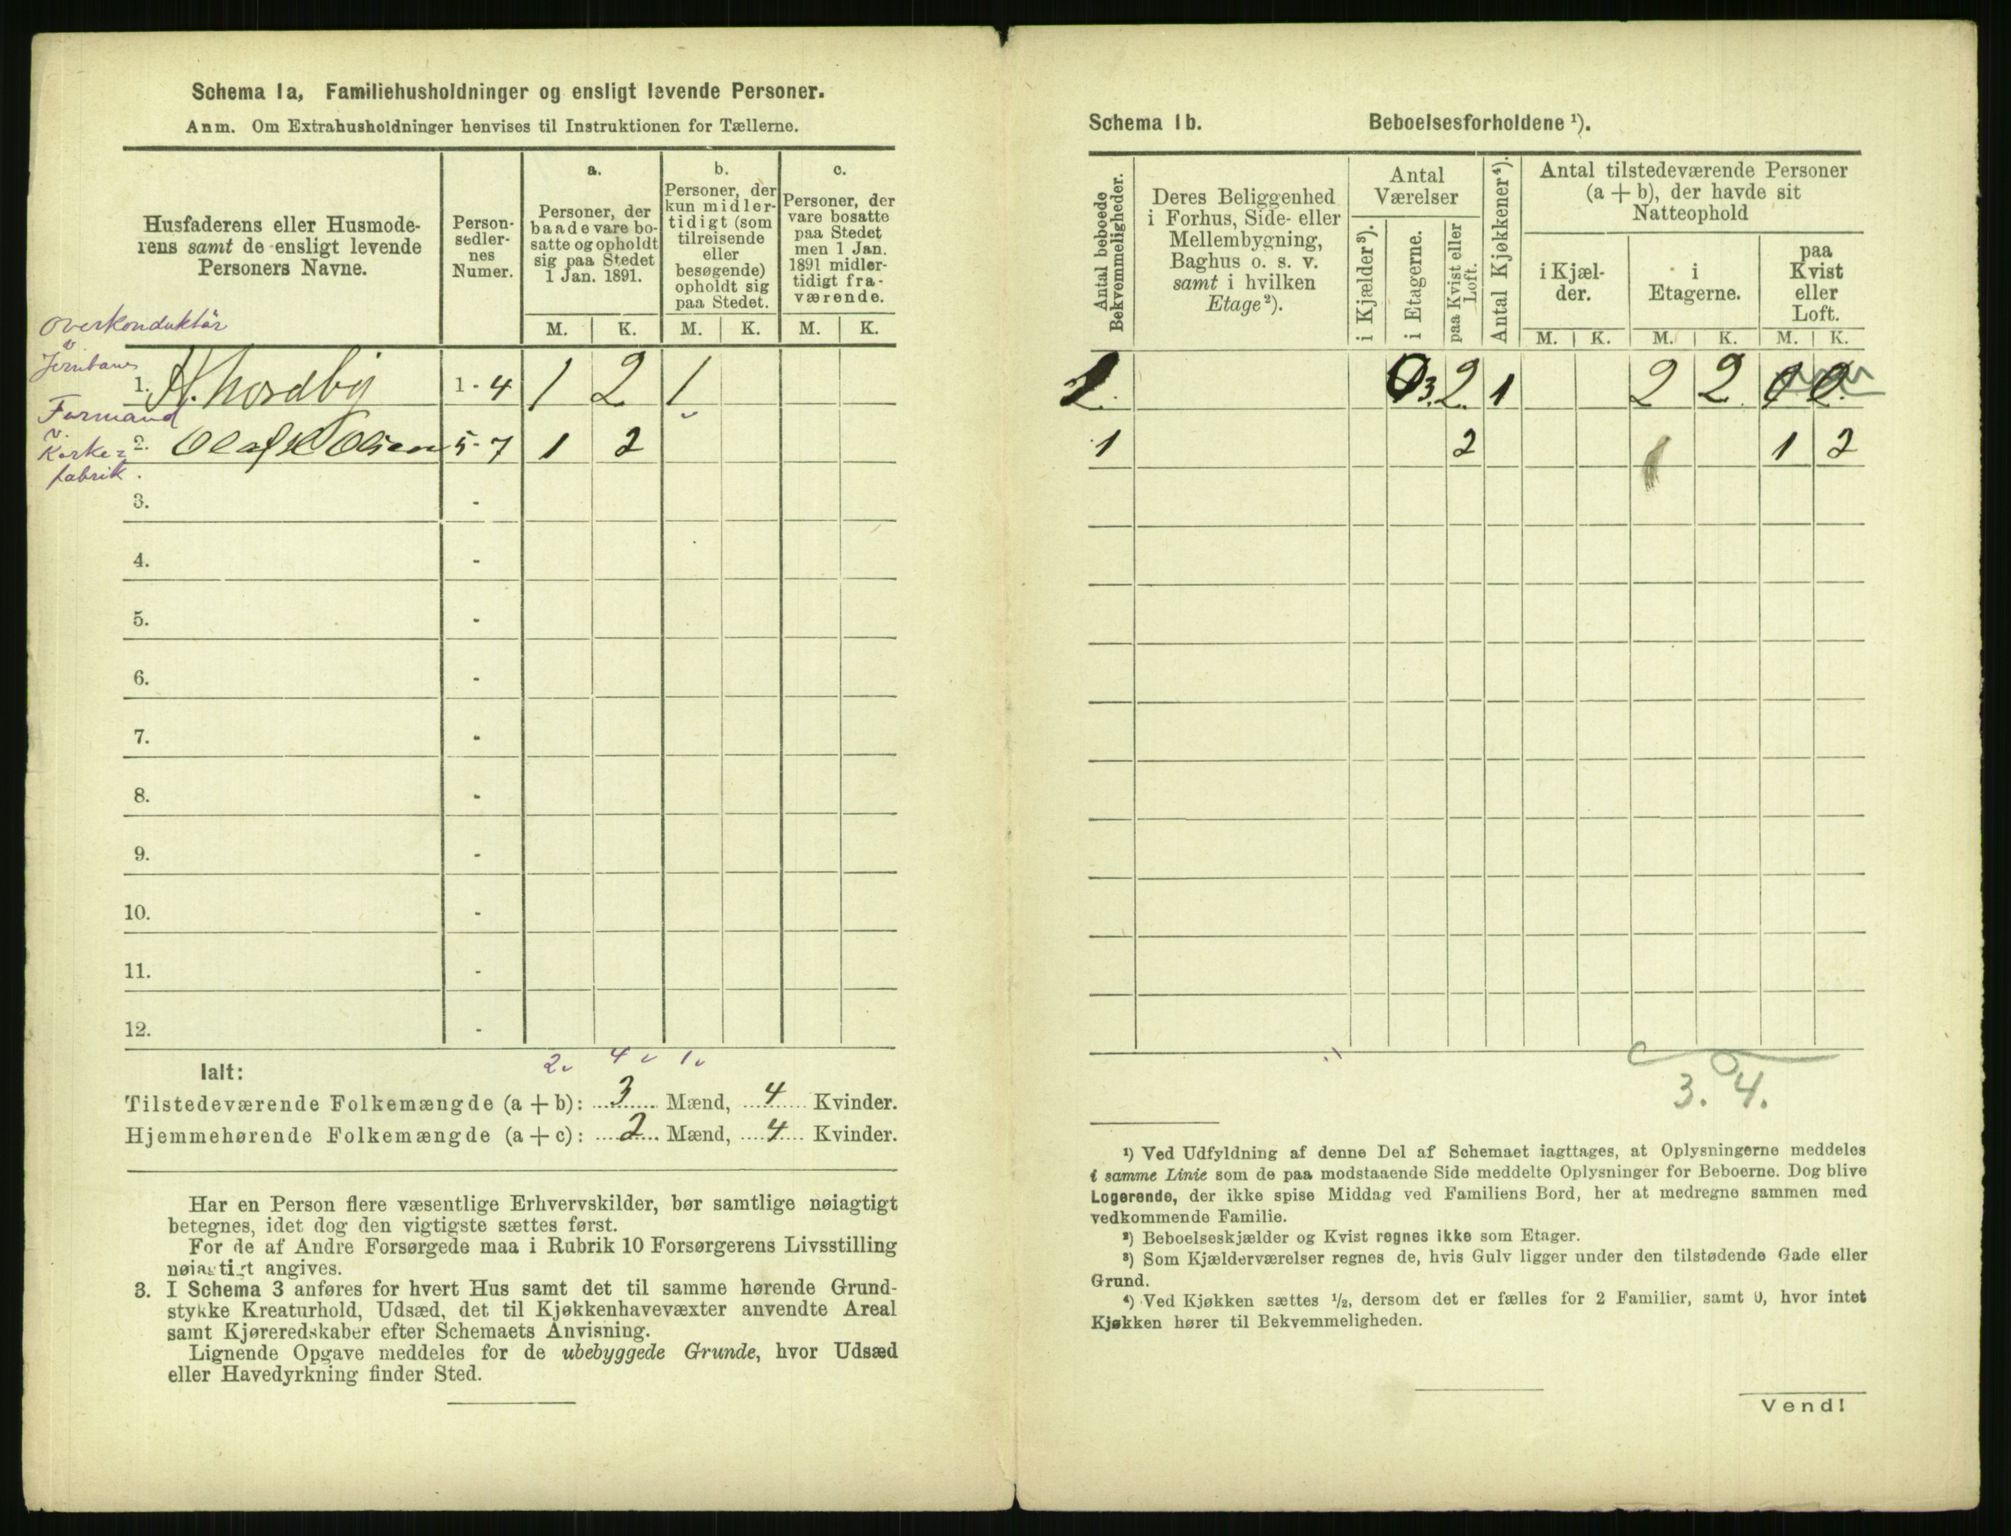 Schema 1a, Familiehusholdninger og ensligt levende Personer.
Anm. Om Extrahusholdninger henvises til Instruktionen for Tællerne.
Husfaderens eller Husmode-
rens samt de ensligt levende
Personers Navne.
Person-
sedler-
nes
Numer.
a.
Personer, der
baade vare bo-
satte og opholdt
sig paa Stedet
1 Jan. 1891.
b.
Personer, der
kun midler-
tidigt (som
tilreisende
eller
besøgende)
opholdt sig
paa Stedet.
c.
Personer, der
vare bosatte
paa Stedet
men 1 Jan.
1891 midler-
tidigt fra-
værende.
M. K. M. K. M. K.
Overkonduktör
v
Jernbane
1. H. Nordby 1-4 1 2 1
Formand
v.
Korke=
fabrik.
2. Olaf Olsen 5-7 1 2
3. -
4. -
5. -
6. -
7. -
8. -
9. -
10. -
11. -
12. -
2v 4v 1v
Ialt:
Tilstedeværende Folkemængde (a + b): 3 Mænd, 4 Kvinder.
Hjemmehørende Folkemængde (a + c): 2 Mænd, 4 Kvinder.
Har en Person flere væsentlige Erhvervskilder, bør samtlige nøiagtigt
betegnes, idet dog den vigtigste sættes først.
For de af Andre Forsørgede maa i Rubrik 10 Forsørgerens Livsstilling
nøiagtigt angives.
3. I Schema 3 anføres for hvert Hus samt det til samme hørende Grund-
stykke Kreaturhold, Udsæd, det til Kjøkkenhavevæxter anvendte Areal
samt Kjøreredskaber efter Schemaets Anvisning.
Lignende Opgave meddeles for de ubebyggede Grunde, hvor Udsæd
eller Havedyrkning finder Sted.
Schema 1b. Beboelsesforholdene ¹).
Antal beboede
Bekvemmeligheder.
Deres Beliggenhed
i Forhus, Side- eller
Mellembygning,
Baghus o. s. v.
samt i hvilken
Etage²).
Antal
Værelser
i Kjælder³).
i Etagerne.
paa Kvist eller
Loft.
Antal Kjøkkener⁴).
Antal tilstedeværende Personer
(a + b), der havde sit
Natteophold
i Kjæl-
der.
i
Etagerne.
paa
Kvist
eller
Loft.
M. K. M. K. M. K.
1. 3. 2. 1 2 2 0 0
1 2 1 2
3. 4.
¹) Ved Udfyldning af denne Del af Schemaet iagttages, at Oplysningerne meddeles
i samme Linie som de paa modstaaende Side meddelte Oplysninger for Beboerne. Dog blive
Logerende, der ikke spise Middag ved Familiens Bord, her at medregne sammen med
vedkommende Familie.
²) Beboelseskjælder og Kvist regnes ikke som Etager.
³) Som Kjælderværelser regnes de, hvis Gulv ligger under den tilstødende Gade eller
Grund.
⁴) Ved Kjøkken sættes ½, dersom det er fælles for 2 Familier, samt 0, hvor intet
Kjøkken hører til Bekvemmeligheden.
Vend!